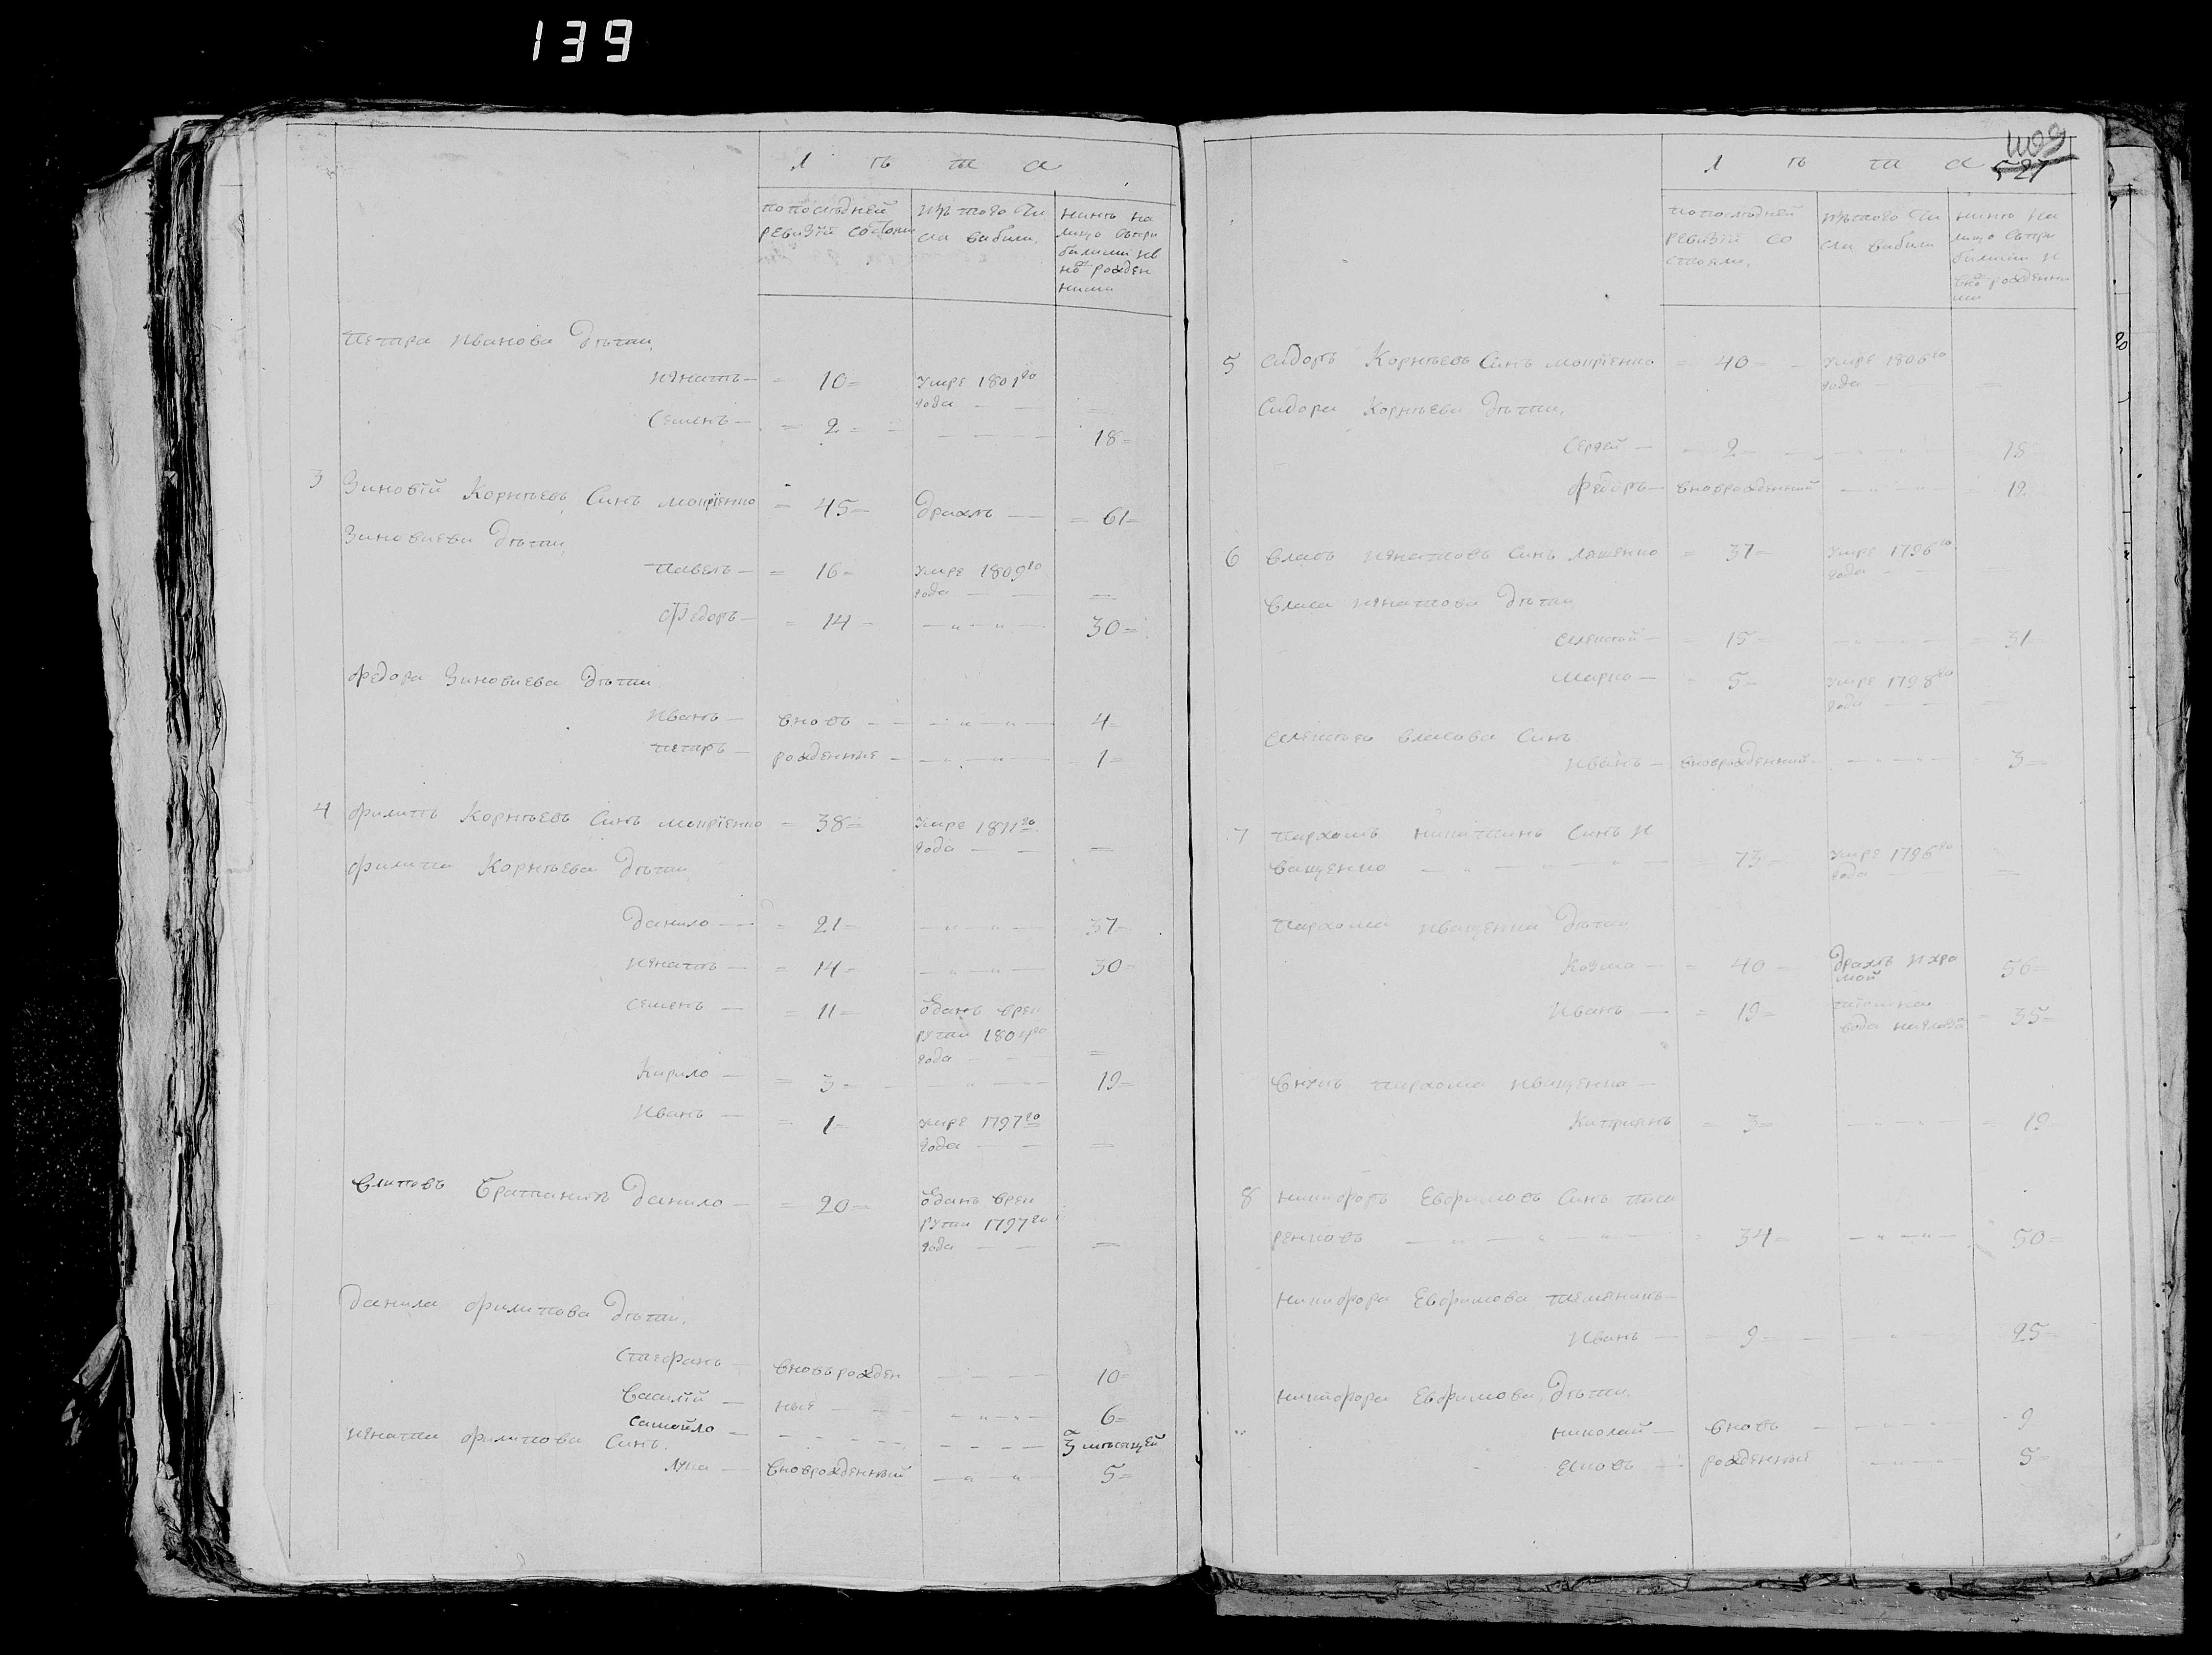 139
Л ѣ т а
по последней ревизіи состояли
изъ того числа выбыли
ныне на лицо съ прибылыми и вно рожденными
Петра Иванова дѣти
Игнатъ — = 10 = умре 1801го года — — =
Семенъ — = 2 = — — — — 18 =
3 Зиновій Корнѣевъ Синъ Мокрїенко = 45 = драхлъ — — = 61 =
Зиновиева дѣти
Павелъ — = 16 = умре 1809го года — — =
Федоръ — = 14 = — „ — „ — 30 =
Федора Зиновиева дѣти
Иванъ — вновъ — — — „ — „ — 4 =
Петръ — рожденные — — „ — „ — 1 =
4 Филипъ Корнѣевъ Синъ Мокрїенко = 38 = умре 1811го года — — =
Филипа Корнѣева дѣти
Данило — = 21 = — „ — „ — 37 =
Игнатъ — = 14 = — „ — „ — 30 =
Семенъ — = 11 = одданъ врекрути 1804го года — — =
Кирило — = 3 = — „ — „ — 19 =
Иванъ — = 1 = умре 1797го года — — =
Братаничъ Данило — = 20 = одданъ врекрути 1797го года — — =
Данила Филипова дѣти
Стефанъ — вновъ рожден — — — — 10 =
Василій — ные — — — „ — „ — 6 =
Самойло — — — — — — — — — 3 мѣсяцей
Игната Филипова Синъ
Лука — вноврожденный — „ — „ 5 =
1109
527
Л ѣ т а
по последней ревизіи состояли
изъ того числа выбыли
ныне на лицо съ прибылыми и вно рожденными
5 Сидоръ Корнѣевъ Синъ Мокрїенко = 40 = — умре 1806го года — =
Сидора Корнѣева дѣти
Сергей — = 2 = — — „ — „ — 18
Федоръ — вноврожденный — „ — „ — 12
6 Власъ Игнатовъ Синъ Ляшенко = 37 = умре 1796го года — — =
Власа Игнатова дѣти
Алексѣй — = 15 = — „ — „ — = 31
Марко — = 5 = умре 1798го года — — =
Алексѣя Власова Синъ
Иванъ — вноврожденный — „ — „ — = 3 =
7 Пархомъ Никитинъ Синъ И
ващенко — „ — „ — „ — = 73 = умре 1796го года — — =
Пархома Иващенка дѣти
Козма — = 40 = драхлъ и хромой 56 =
Иванъ — = 19 = = 35 =
Внукъ Пархома Иващенка —
Киприянъ = 3 = — „ — „ — = 19
8 Никифоръ Евфимовъ Синъ Писа
ренковъ — „ — „ — „ — = 34 = — „ — „ — 50 =
Никифора Евфимова племяникъ —
Иванъ — = 9 = — — „ — 25 =
Никифора Евфимова дѣти
Николай — вновъ — — „ — „ — 9
Яковъ — рожденные — „ — „ — 5 =